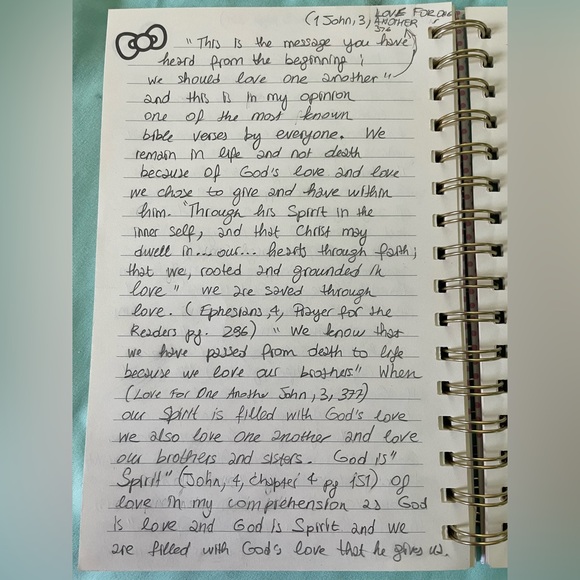 (1 John, 3, LOVE FOR ONE
ANOTHER
376
"This is the message you have
heard from the beginning;
we should love one another"
and this is in my opinion
one of the most known
bible verses by everyone. We
remain in life and not death
because of God's love and love
we chose to give and have within
him. "Through his Spirit in the
inner self, and that Christ may
dwell in... our... hearts through faith;
that we, rooted and grounded in
love" we are saved through
love. (Ephesians, 4, Prayer for the
Readers pg. 286) "We know that
we have passed from death to life
because we love our brothers" When
(Love For One Another John, 3, 377)
our spirit is filled with God's love
we also love one another and love
our brothers and sisters. God is"
Spirit" (John, 4, Chapter 4 pg 151) of
love in my comprehension as God
is love and God is Spirit and we
are filled with God's love that he gives us.